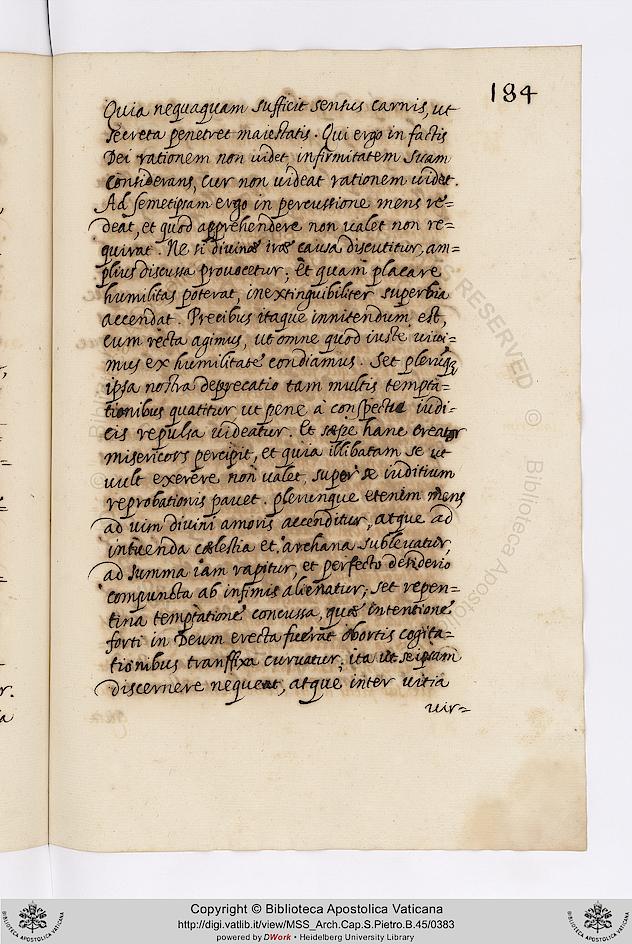 184
Quia nequaquam sufficit sensus carnis, ut
secreta penetret maiestatis. Qui ergo in factis
Dei rationem non uidet infirmitatem suam
considerans, cur non uideat rationem uidet.
Ad semetipsam ergo in percussione mens re=
deat, et quod apprehendere non ualet non re=
quirat. Ne si diuinae irae causa discutitur, am=
plius discussa prouocetur; Et quam placare
humilitas poterat, inextinguibiliter superbia
accendat. Precibus itaque innitendum est,
cum recta agimus, ut omne quod iuste uiui=
mus ex humilitate condiamus. Set plerumque
ipsa nostra deprecatio tam multis tempta=
tionibus quatitur ut pene à conspectu iudi=
cis repulsa uideatur. Et saepe hanc creator
misericors percipit, et quia illibatam se ut
uult exerere non ualet, super se iuditium
reprobationis pauet. plerunque etenim mens
ad uim diuini amoris accenditur, atque ad
intuenda caelestia et archana subleuatur,
ad summa iam rapitur, et perfecto desiderio
compuncta ab infimis alienatur; set repen=
tina temptatione concussa, quae intentione
forti in Deum erecta fuerat obortis cogita=
tionibus transfixa curuatur; ita ut se ipsam
discernere nequeat, atque inter uitia
uir=
r.
ia
RESERVED © Biblioteca Aposto
Copyright © Biblioteca Apostolica Vaticana
http://digi.vatlib.it/view/MSS_Arch.Cap.S.Pietro.B.45/0383
powered by DWork • Heidelberg University Library